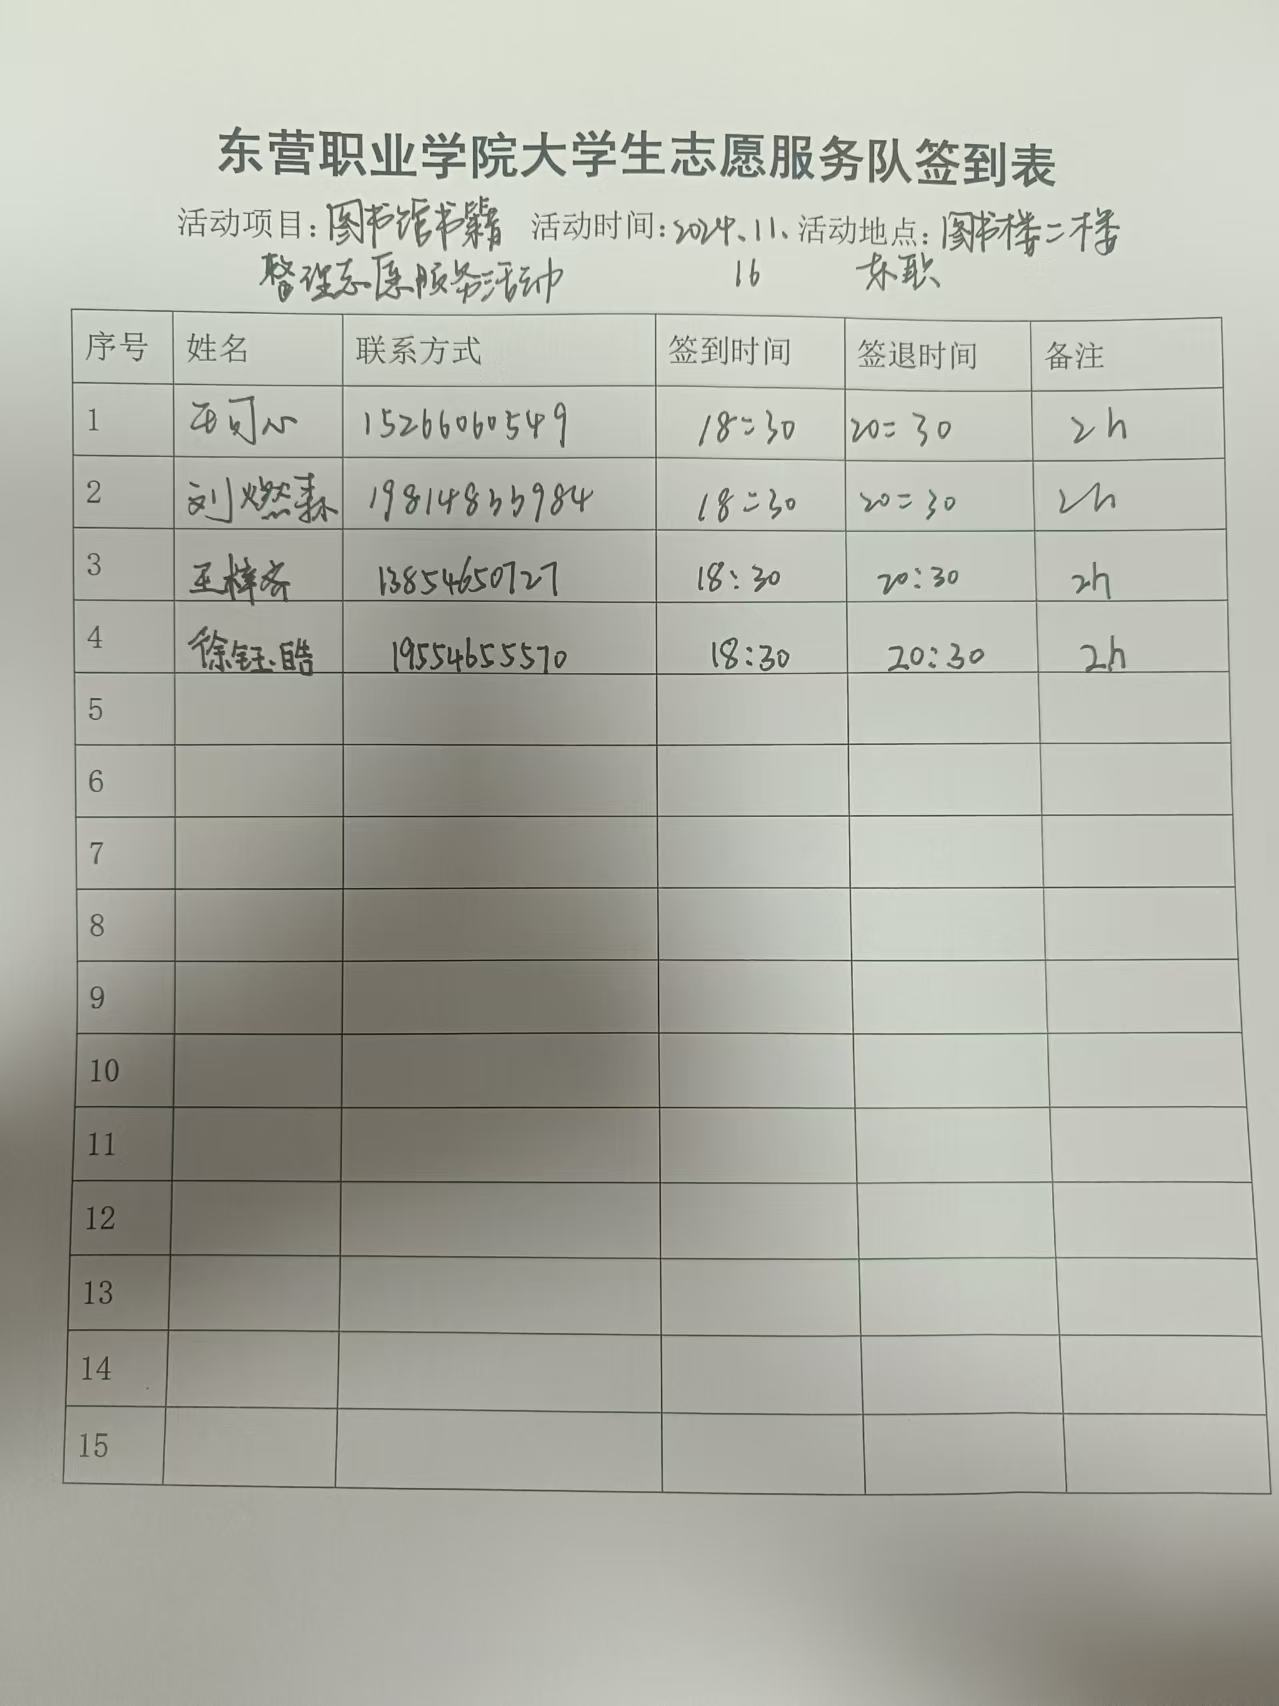 东营职业学院大学生志愿服务队签到表
活动项目：图书馆书籍 活动时间：2024.11. 活动地点：图书楼二楼
整理志愿服务活动 16 东职
序号 姓名 联系方式 签到时间 签退时间 备注
1 王可心 15266060549 18:30 20:30 2h
2 刘燃森 19814855984 18:30 20:30 2h
3 王梓齐 13854650727 18:30 20:30 2h
4 徐钰皓 19554655570 18:30 20:30 2h
5
6
7
8
9
10
11
12
13
14
15